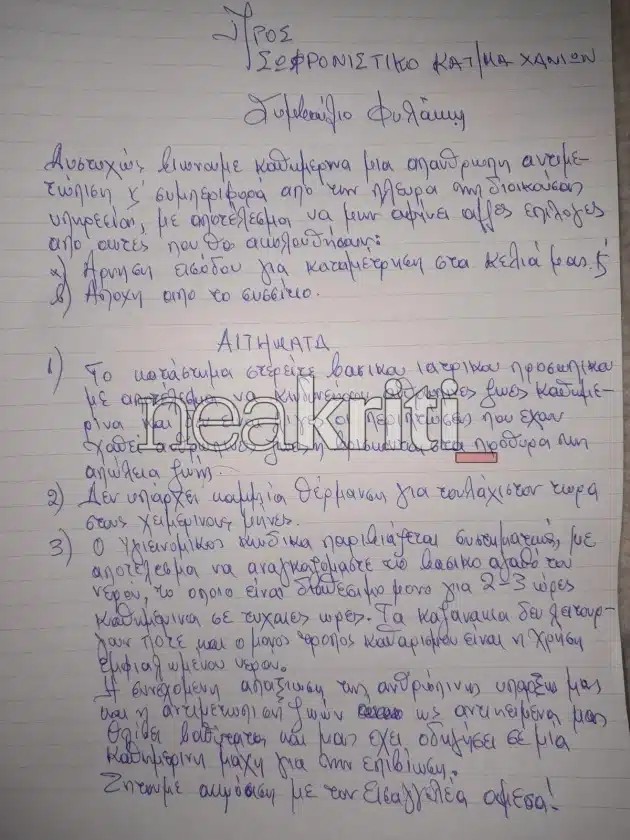 Προς
ΣΩΦΡΟΝΙΣΤΙΚΟ ΚΑΤ/ΜΑ ΧΑΝΙΩΝ
Συμβούλιο Φυλακης
Δυστυχώς βιωνουμε καθημερινα μια απανθρωπη αντιμε-
τώπιση κ' συμπεριφορα απο την πλευρα της διοικούσας
υπηρεσίας, με αποτέλεσμα να μην αφηνει αλλες επιλογες
απο αυτες που θα ακολουθήσουν:
α) Αρνηση εισόδου για καταμέτρηση στα κελιά μας. &
β) Αποχη απο το συσσιτιο.
ΑΙΤΗΜΑΤΑ
1) Το κατάστημα στερειτε βασικου ιατρικου προσωπικου
με αποτέλεσμα να κινδυνεύουν ζωες καθημε-
ρινα και οι περιπτωσεις που εχουν
χαθει στα πρόθυρα της
απώλεια ζωης.
2) Δεν υπάρχει καμμία θέρμανση για τουλάχιστον τωρα
στους χειμερινους μηνες.
3) Ο Υγιεινομικος κωδικα παραβιάζεται συστηματικα, με
αποτελεσμα να αναγκαζομαστε το βασικο αγαθο του
νερου, το οποιο είναι διαθεσιμο μονο για 2-3 ώρες
καθημερινα σε τυχαιες ωρες. Τα καζανακια δεν λειτουρ-
γουν ποτε και ο μονος τροπος καθαρισμου ειναι η χρηση
εμφιαλωμενου νερου.
Η συνεχομενη απαξιωση της ανθρώπινης υπαρξης μας
και η αντιμετωπιση ζωών ως αντικειμενα μας
θλιβει βαθύτατα και μας εχει οδηγήσει σε μια
καθημερινη μαχη για την επιβιωση.
Ζητουμε ακρόαση με τον Εισαγγελέα αμεσα!
neakriti